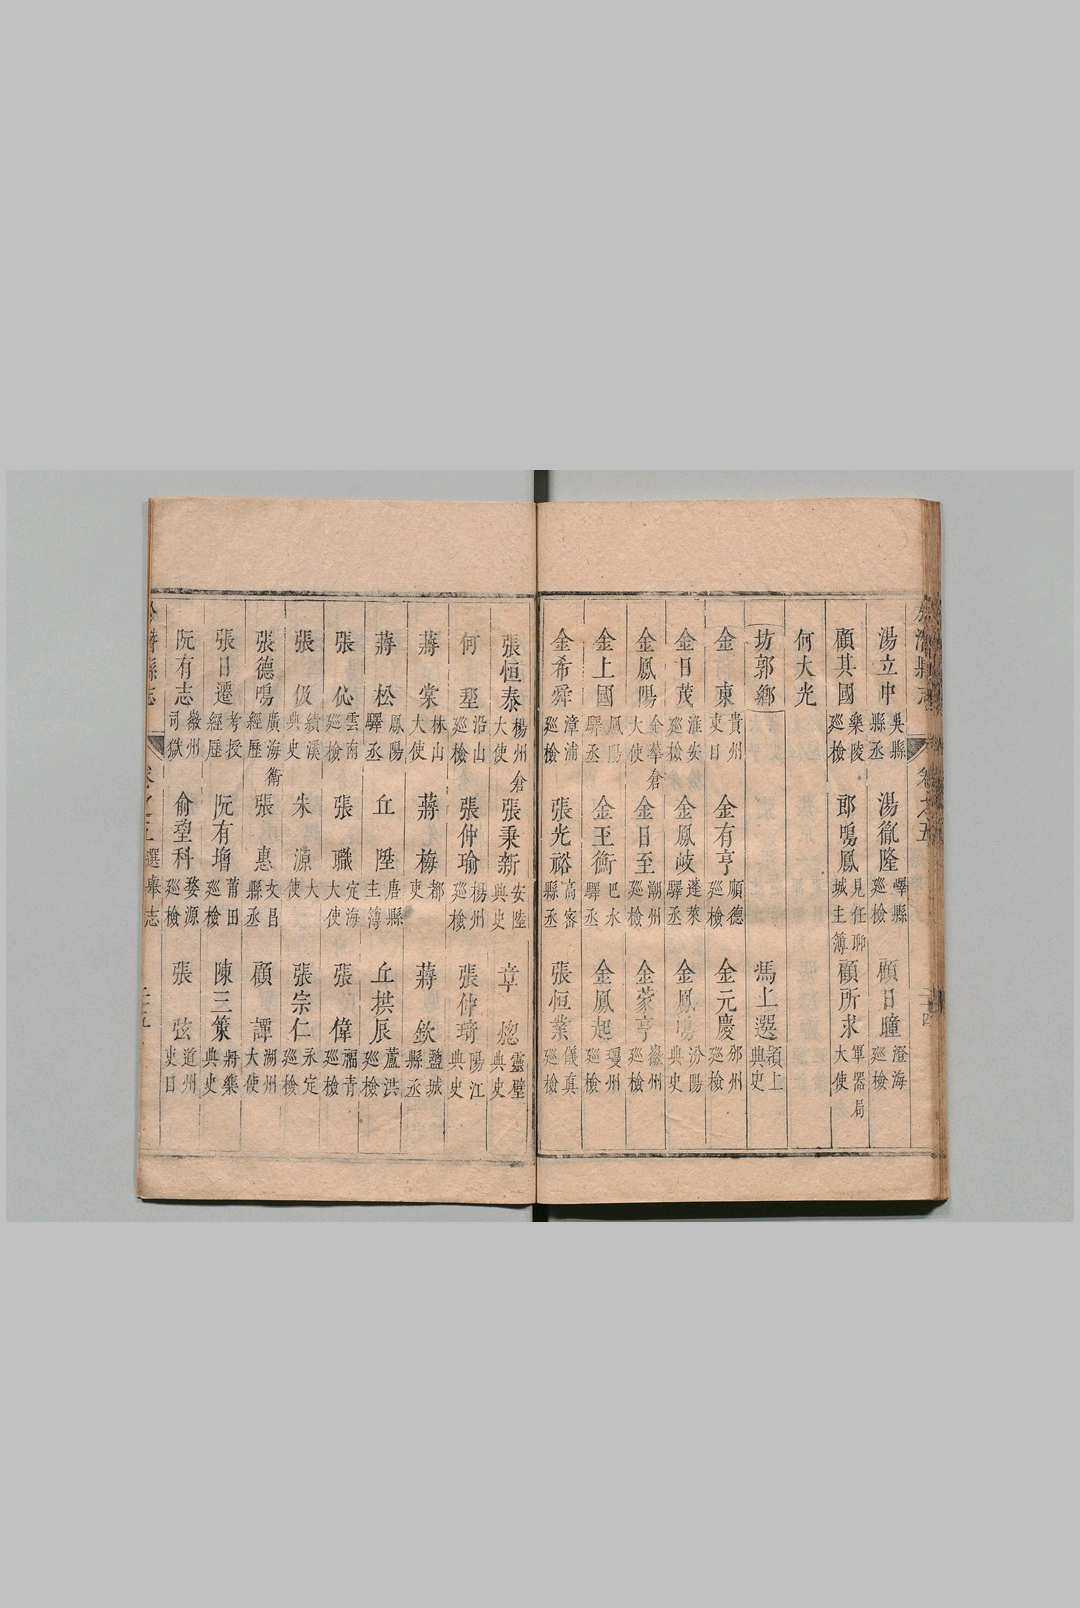 湯立中 吳縣縣丞 湯胤隆 嶧縣廵檢 顧日曈 澄海廵檢
顧其國 樂陵廵檢 郎鳴鳳 見任聊城主簿 顧所求 軍器局大使
何大光
坊郭鄉 馮上選 潁上典史
金東 貴州吏目 金有亨 順德廵檢 金元慶 邠州廵檢
金日茂 淮安廵檢 金鳳岐 蓬萊驛丞 金鳳鳴 汾陽典史
金鳳陽 金華倉大使 金日至 潮州廵檢 金蒙亨 廵檢
金上國 鳳陽驛丞 金王衡 巴水驛丞 金鳳起 廵檢
金希舜 漳浦廵檢 張光裕 高密縣丞 張恒業 儀真廵檢
張恒泰 楊州倉大使 張秉新 安陸典史 章 靈璧典史
何 沿山廵檢 張仲瑜 楊州廵檢 張仲琦 陽江典史
蔣棠 林山大使 蔣梅 都吏 蔣欽 鹽城縣丞
蔣松 鳳陽驛丞 丘陞 唐縣主簿 丘拱辰 蘆洪廵檢
張伈 雲南廵檢 張職 定海大使 張偉 福青廵檢
張伋 績溪典史 朱源 大使 張宗仁 永定廵檢
張德鳴 廣海衛經歷 張惠 文昌縣丞 顧譚 湖州大使
張日遷 考授經歷 阮有增 莆田廵檢 陳三策 將樂典史
阮有志 徽州司獄 俞望科 婺源廵檢 張弦 道州吏目
縣志 選舉志